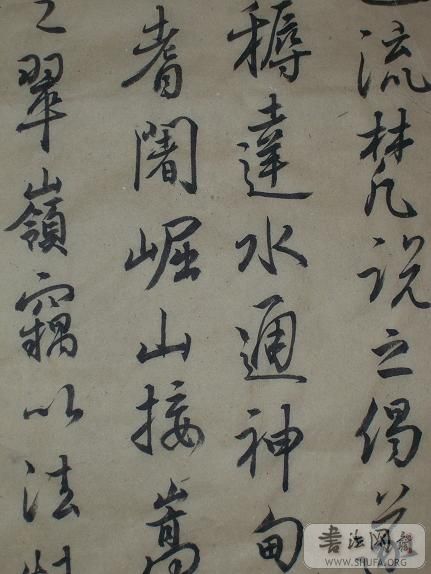 流梵説之偈
耨達水通神甸
耆闍崛山接嵩
之翠嶺竊以法
書法网
WWW.SHUFA.ORG